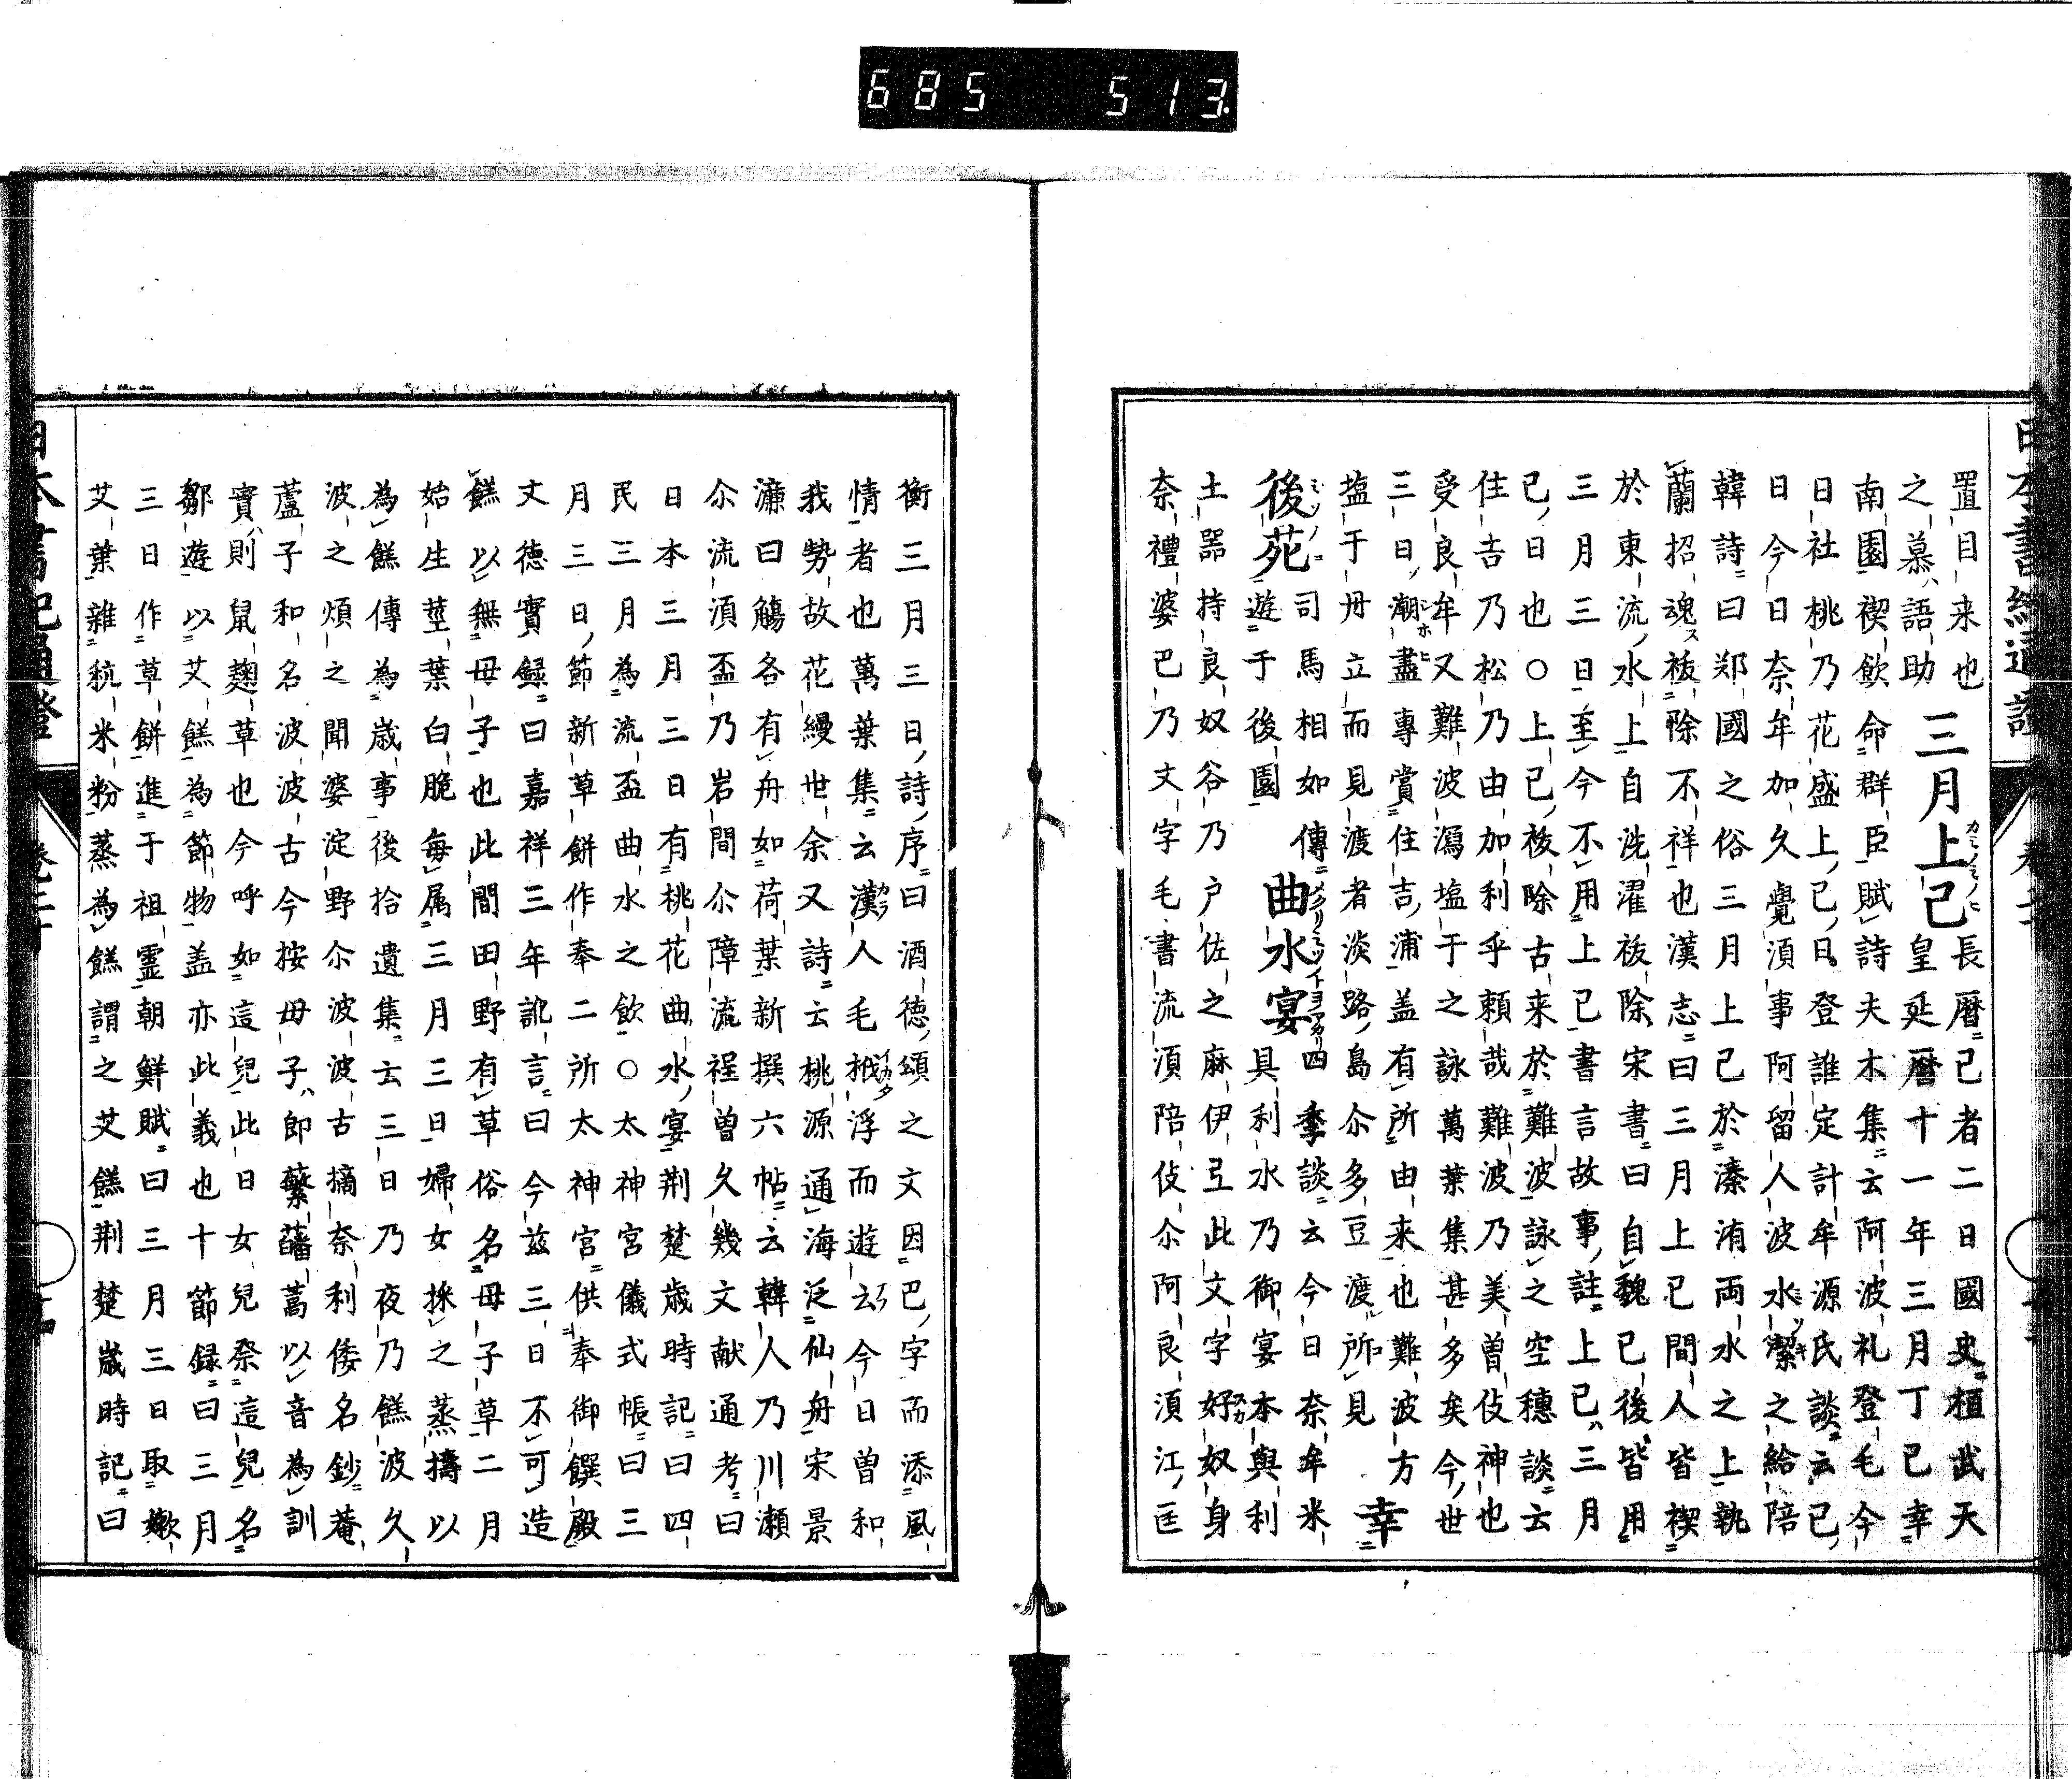 685 513
置目来也
三月上巳 カミノミノニ
長暦己者二日國史桓武天
之慕語助
皇延暦十一年三月丁巳幸
南園禊飲命群臣賦詩夫木集云阿波礼登毛今
日社桃乃花盛上已日登誰定計牟源氏談云已
日今日奈年加久覺湏事阿留人波水潔之給陪
韓詩曰郑國之俗三月上巳於溱洧両水之上執
蘭招魂祓除不祥也漢志曰三月上巳間人皆禊
於東流水上自洗濯祓除宋書曰自魏已後皆用
三月三日至今不用上巳書言故事註上巳三月
已日也○上已祓除古来於難波詠之空穗談云
住吉乃松乃由加利乎頼哉難波乃美曽伎神也
受良牟又難波潟塩于之詠萬葉集甚多矣今世
三日潮盡専賞住吉浦盖有所由来也難波方
塩于丹立而見渡者淡路島尒多豆渡所見
幸
後苑 ミソノニ
遊于後園
司馬相如傳
曲水宴 メクリミツノトヨアカリ
四季談云今日奈牟米
具利水乃御宴本與利
土器持良奴谷乃戸佐之麻伊弖此文字好奴身
奈禮婆巴乃文字毛書流湏陪伎尒阿良湏江匡
衡三月三日詩序曰酒德頌之文因巴字而添風
情者也萬葉集云漢人毛栰浮而遊云今日曽和
我勢故花縵世余又詩云桃源通海泛仙舟宋景
濂曰觴各有舟如荷葉新撰六帖云韓人乃川瀬
尒流湏盃乃岩間尒障流程曽久幾文献通考曰
日本三月三日有桃花曲水宴荆楚歳時記曰四
民三月為流盃曲水之飲○太神宮儀式帳曰三
月三日節新草餅作奉二所太神宮供奉御饌殿
文德實録曰嘉祥三年訛言曰今茲三日不可造
餻以無母子也此間田野有草俗名母子草二月
始生莖葉白脆毎属三月三日婦女採之蒸擣以
為餻傳為歳事後拾遺集云三日乃夜乃餻波久
波之煩之聞婆淀野尒波波古摘奈利倭名鈔菴
蘆子和名波波古今按母子即蘩蘠蒿以音為訓
實則鼠麹草也今呼如這兒此日女兒祭這兒名
鄒遊以艾餻為節物盖亦此義也十節録曰三月
三日作草餅進于祖霊朝鮮賦曰三月三日取嫩
艾葉雜秔米粉蒸為餻謂之艾餻荆楚歳時記曰